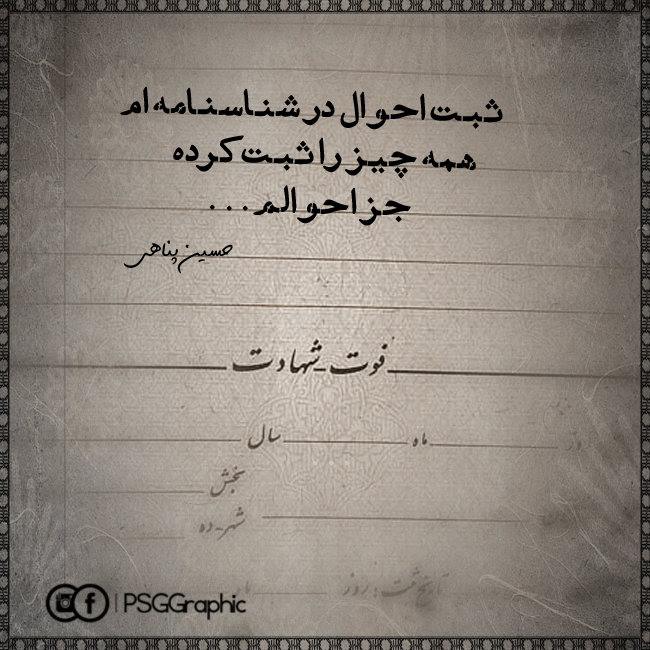 ثبت احوال در شناسنامه ام
همه چیز را ثبت کرده
جز احوالم...
حسین پناهی
فوت - شهادت
روز ماه سال
بخش
شهر - ده
تاریخ ثبت : روز
PSGGraphic